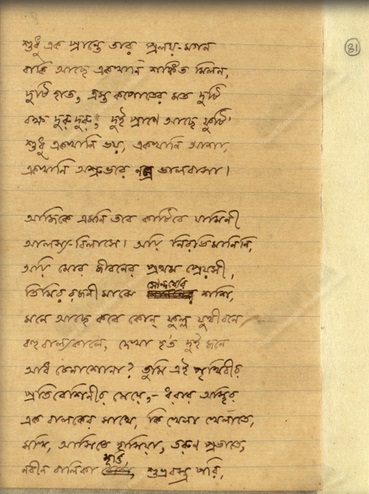 (31)
শুধু এক প্রান্তে তার প্রলয়-মগন
বাকি আছে একখানি শঙ্কিত মিলন,
দুটি হাত, ত্রস্ত কপোতের মত দুটি
বক্ষ দুরুদুরু; দুই প্রাণে আছে ফুটি
শুধু একখানি ভয়, একখানি আশা,
একখানি অশ্রুভরে নম্র ভালবাসা।
আজিকে এমনি তবে কাটিবে যামিনী
আলস্য-বিলাসে। অয়ি নিরভিমানিনি,
অয়ি মোর জীবনের প্রথম প্রেয়সী,
সৌন্দর্য্যের
মনে আছে কবে কোন্ ফুল্ল যূথীবনে
বহু বাল্যকালে, দেখা হত দুই জনে
আধ চেনাশোনা? তুমি এই পৃথিবীর
প্রতিবেশিনীর মেয়ে,- ধরার অস্থির
এক বালকের সাথে, কি খেলা খেলাতে,
সখি, আসিতে হাসিয়া, তরুণ প্রভাতে,
মূর্ত্তি
নবীন বালিকা শুভ্রবস্ত্র পরি,